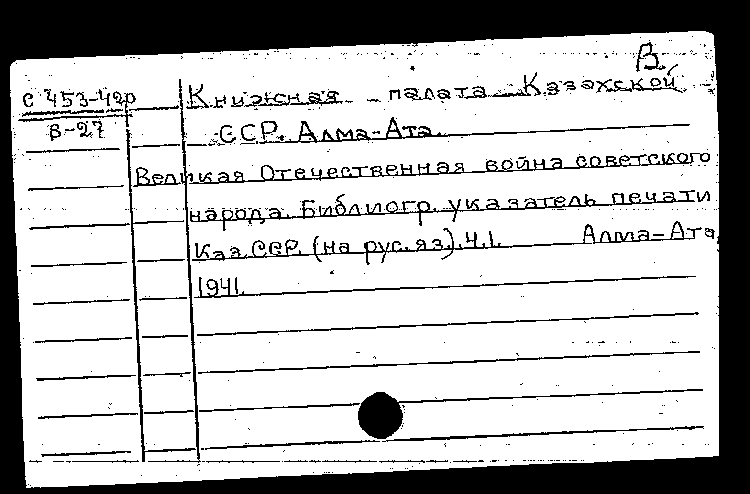 В.
С 453-42р
В-27
Книжная палата Казахской
ССР. Алма-Ата.
Великая Отечественная война советского
народа. Библиогр. указатель печати
Каз.ССР. (на рус. яз). Ч.1. Алма-Ата,
1941.